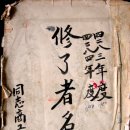 四二八三年度
四二八四年度
修了者名
同志商工